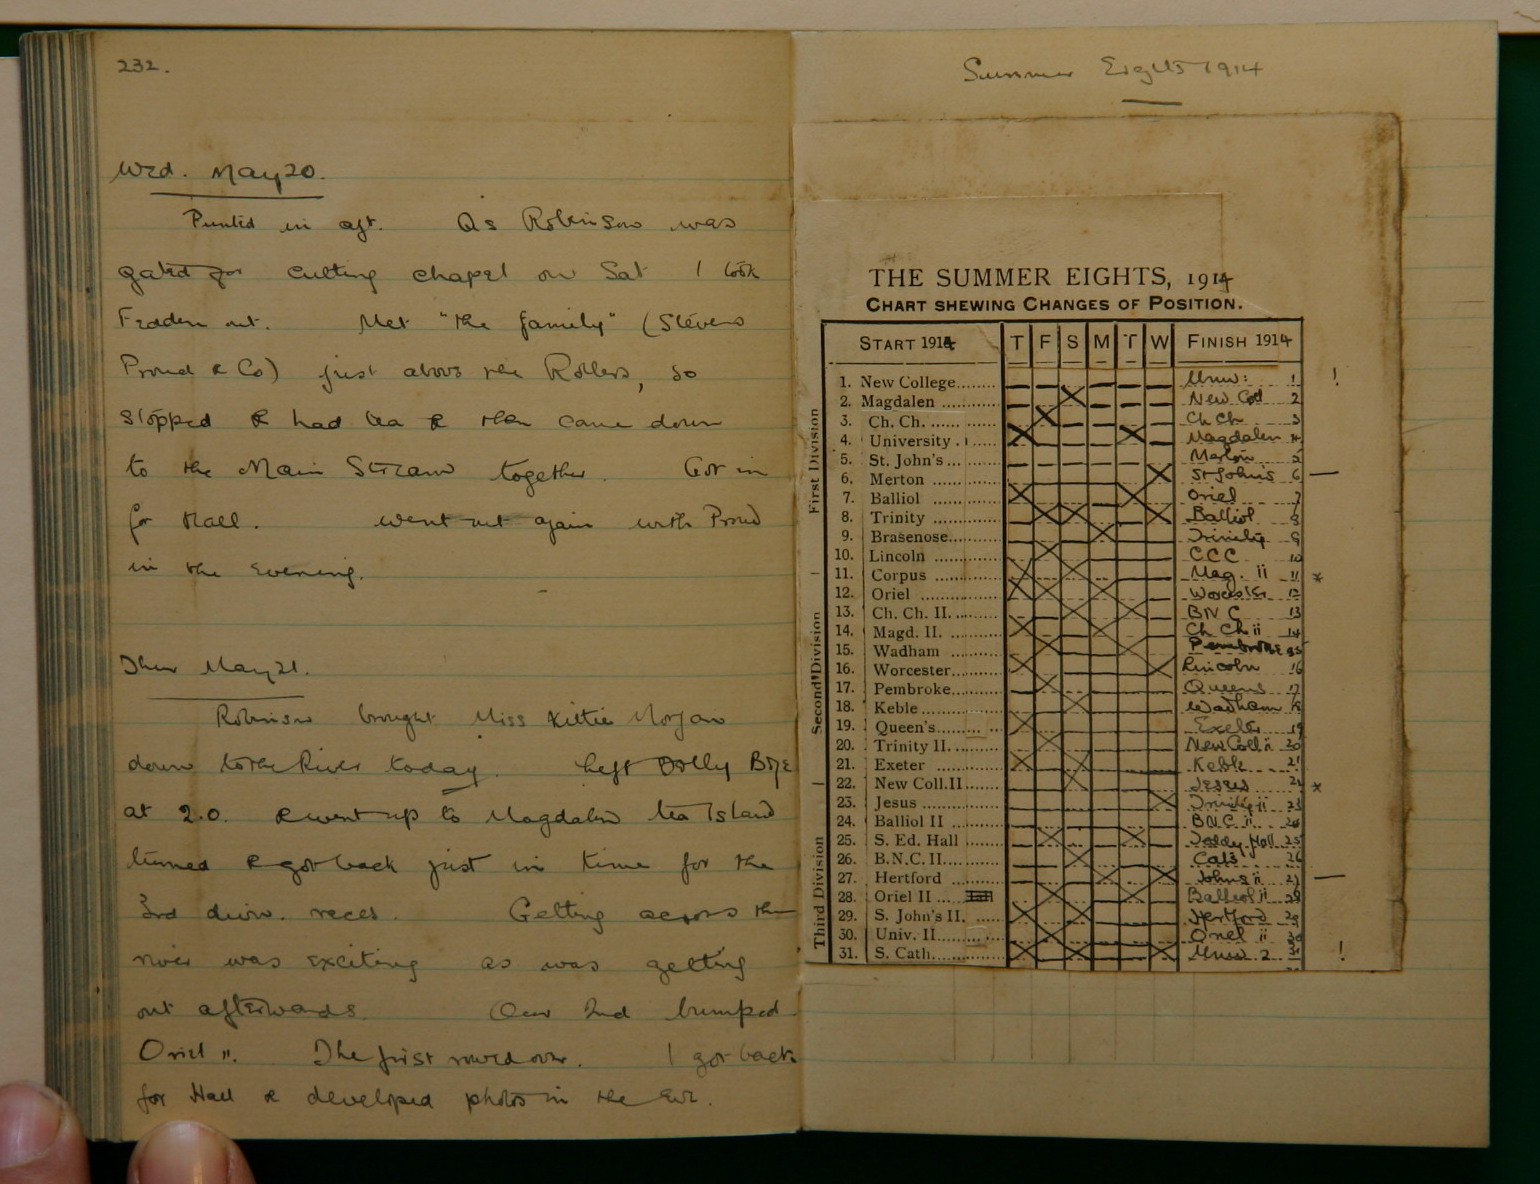 232.
Wed. May 20.
Punted in aft. As Robinson was
gated for cutting chapel on Sat I took
Fedden out. Met "the family" (Stevens
Proud & Co) just above the Rollers, so
stopped & had tea & then came down
to the Main Stream together. Got in
for Hall. Went out again with Proud
in the Evening.
Thur May 21.
Robinson brought Miss Kittie Morgan
down to the River today. Left Folly Bdge
at 2.0. & went up to Magdalen tea Island
turned & got back just in time for the
3rd divn. races. Getting across the
river was exciting as was getting
out afterwards. Our 2nd bumped
Oriel ii. The first rowed over. I got back
for Hall & developed photos in the Eve.
Summer Eights 1914
THE SUMMER EIGHTS, 1914
CHART SHEWING CHANGES OF POSITION.
START 1914 T F S M T W FINISH 1914
First Division
Second Division
Third Division
1. New College........ Univ: 1 !
2. Magdalen ............ New Coll 2
3. Ch. Ch. ............ Ch Ch 3
4. University ........ Magdalen 4
5. St. John's ......... Merton 5
6. Merton ............ St John's 6 —
7. Balliol ............ Oriel 7
8. Trinity ............ Balliol 8
9. Brasenose........... Trinity 9
10. Lincoln ............ CCC 10
11. Corpus ............ Mag. ii 11 *
12. Oriel ............ Worcester 12
13. Ch. Ch. II. ......... BNC 13
14. Magd. II. ......... Ch Ch ii 14
15. Wadham ............ Pembroke 15
16. Worcester........... Lincoln 16
17. Pembroke............ Queens 17
18. Keble ............ Wadham 18
19. Queen's ............ Exeter 19
20. Trinity II. ......... New Coll ii 20
21. Exeter ............ Keble 21
22. New Coll.II ........ Jesus 22 *
23. Jesus ............ Trinity ii 23
24. Balliol II ......... BNC ii 24
25. S. Ed. Hall ........ Teddy Hall 25
26. B.N.C. II........... Cats 26
27. Hertford ............ Johns ii 27 —
28. Oriel II ............ Balliol ii 28
29. S. John's II. ...... Hertford 29
30. Univ. II............ Oriel ii 30
31. S. Cath............. Univ 2 31 !